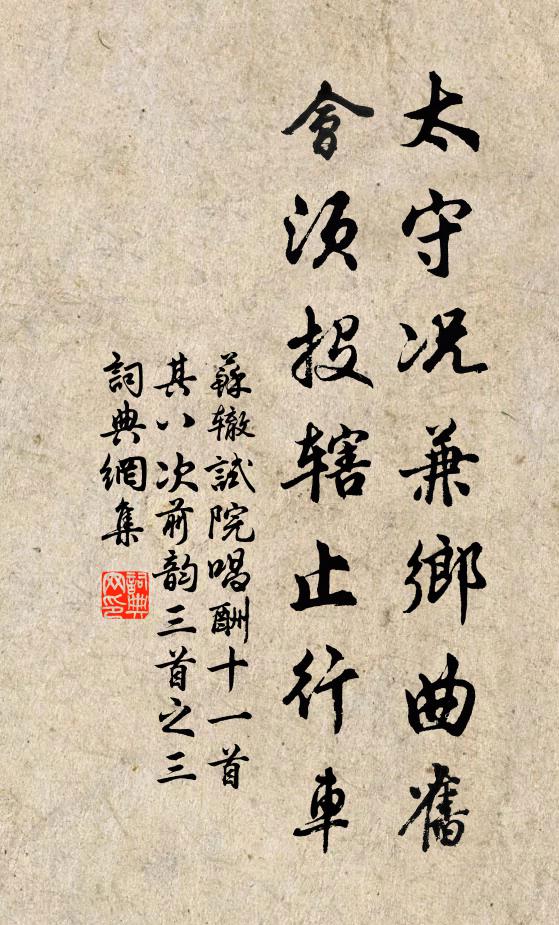 太守况兼鄉曲舊
會須投辖止行車
蘇辙試院唱酬十一首
其八次前韵三首之三
詞典網集
詞典网印